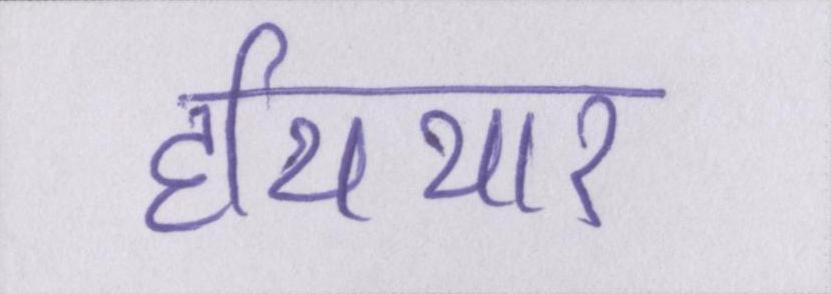 हथियार